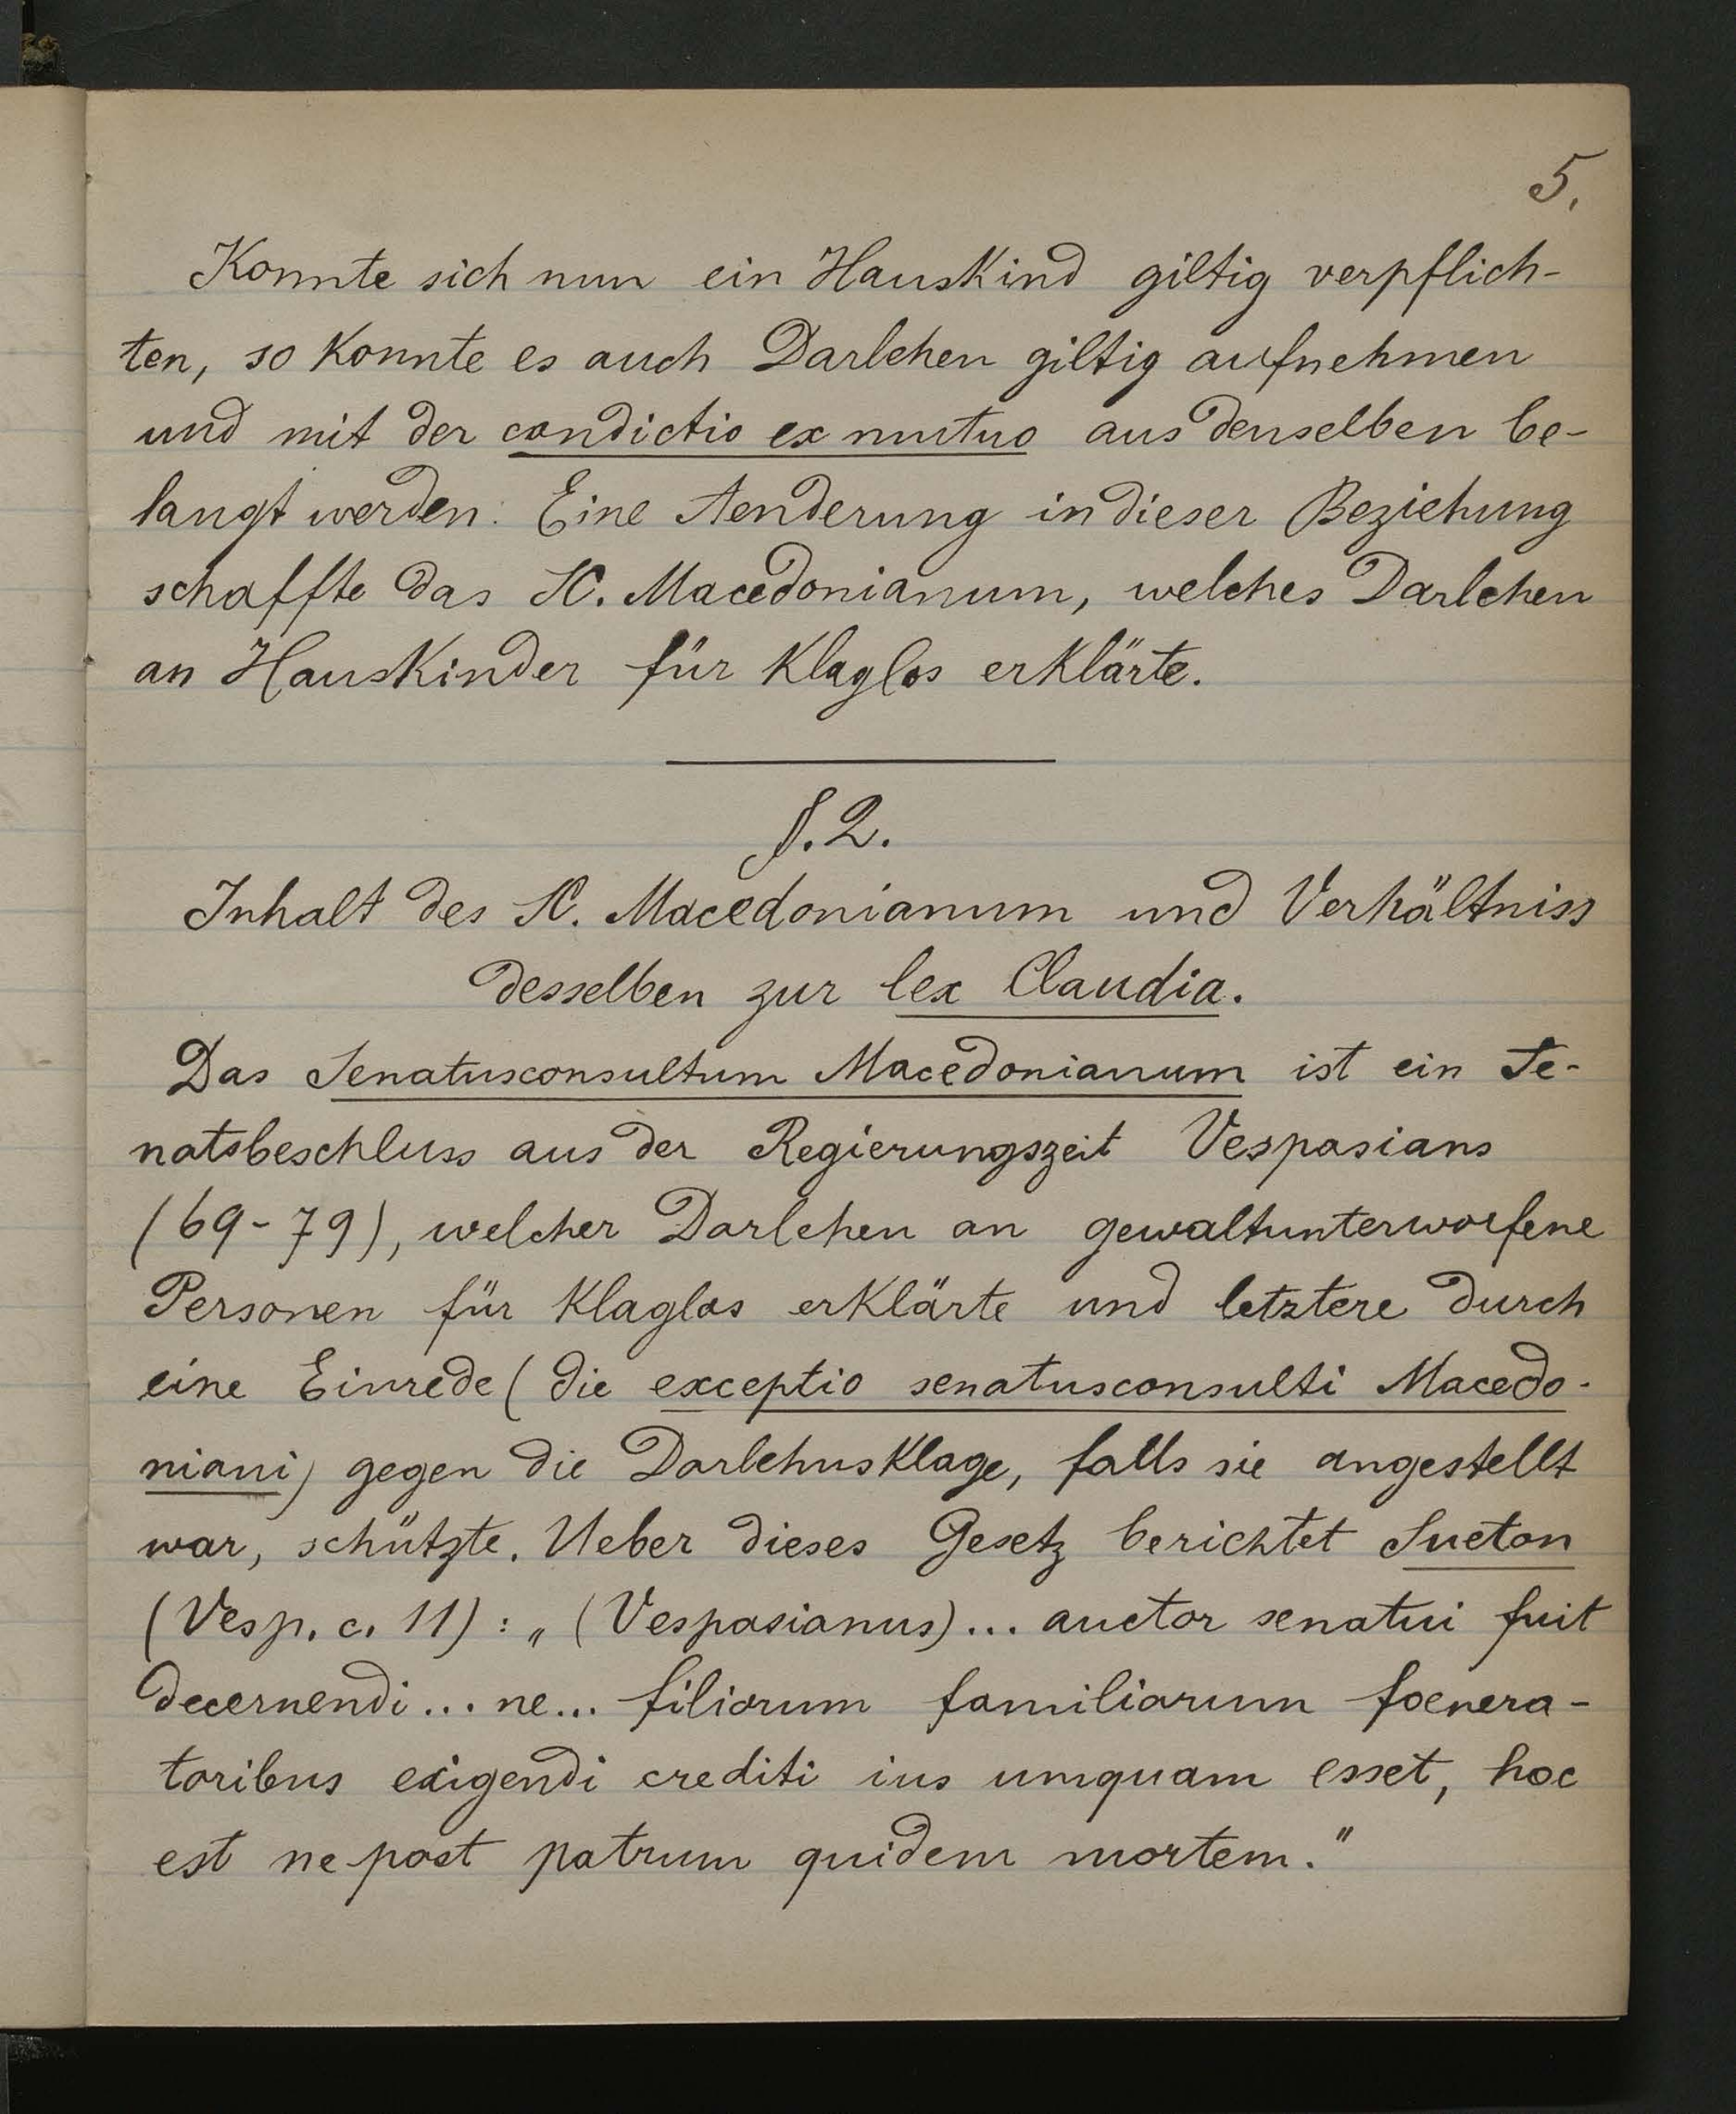 5.
Konnte sich nun ein Hauskind giltig verpflich-
ten, so konnte es auch Darlehen giltig aufnehmen
und mit der condictio ex mutuo aus denselben be-
langt werden. Eine Aenderung in dieser Beziehung
schaffte das SC. Macedonianum, welches Darlehen
an Hauskinder für klaglos erklärte.
§. 2.
Inhalt des SC. Macedonianum und Verhältniss
desselben zur lex Claudia.
Das Senatusconsultum Macedonianum ist ein Se-
natsbeschluss aus der Regierungszeit Vespasians
(69-79), welcher Darlehen an gewaltunterworfene
Personen für klaglos erklärte und letztere durch
eine Einrede (die exceptio senatusconsulti Macedo-
niani) gegen die Darlehnsklage, falls sie angestellt
war, schützte. Ueber dieses Gesetz berichtet Sueton
(Vesp. c. 11): „(Vespasianus)... auctor senatui fuit
decernendi... ne... filiorum familiarum foenera-
toribus exigendi crediti ius umquam esset, hoc
est ne post patrum quidem mortem."